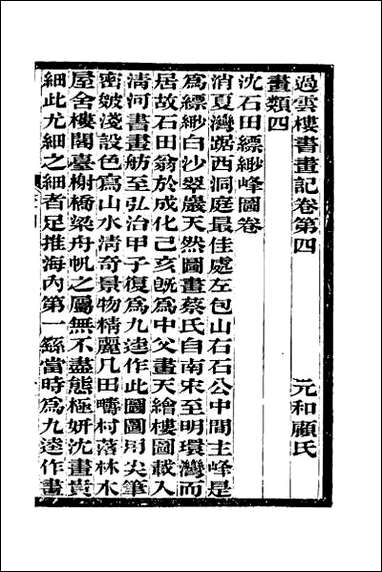 過雲樓書畫記卷第四　元和顧氏
畫類四
沈石田縹緲峰圖卷
消夏灣踞西洞庭最佳處左包山右石公中閒主峰是
爲縹緲白沙翠巖天然圖畫蔡氏自南宋至明環灣而
居故石田翁於成化己亥旣爲中父畫天繪樓圖載入
淸河書畫舫至弘治甲子復爲九逵作此圖圖用尖筆
密皴淺設色寫山水淸奇景物精麗几田疇村落林水
屋舍樓閣臺榭橋梁舟帆之屬無不盡態極姸沈畫貴
細此尤細之細者足推海內第一繇當時爲九逵作畫